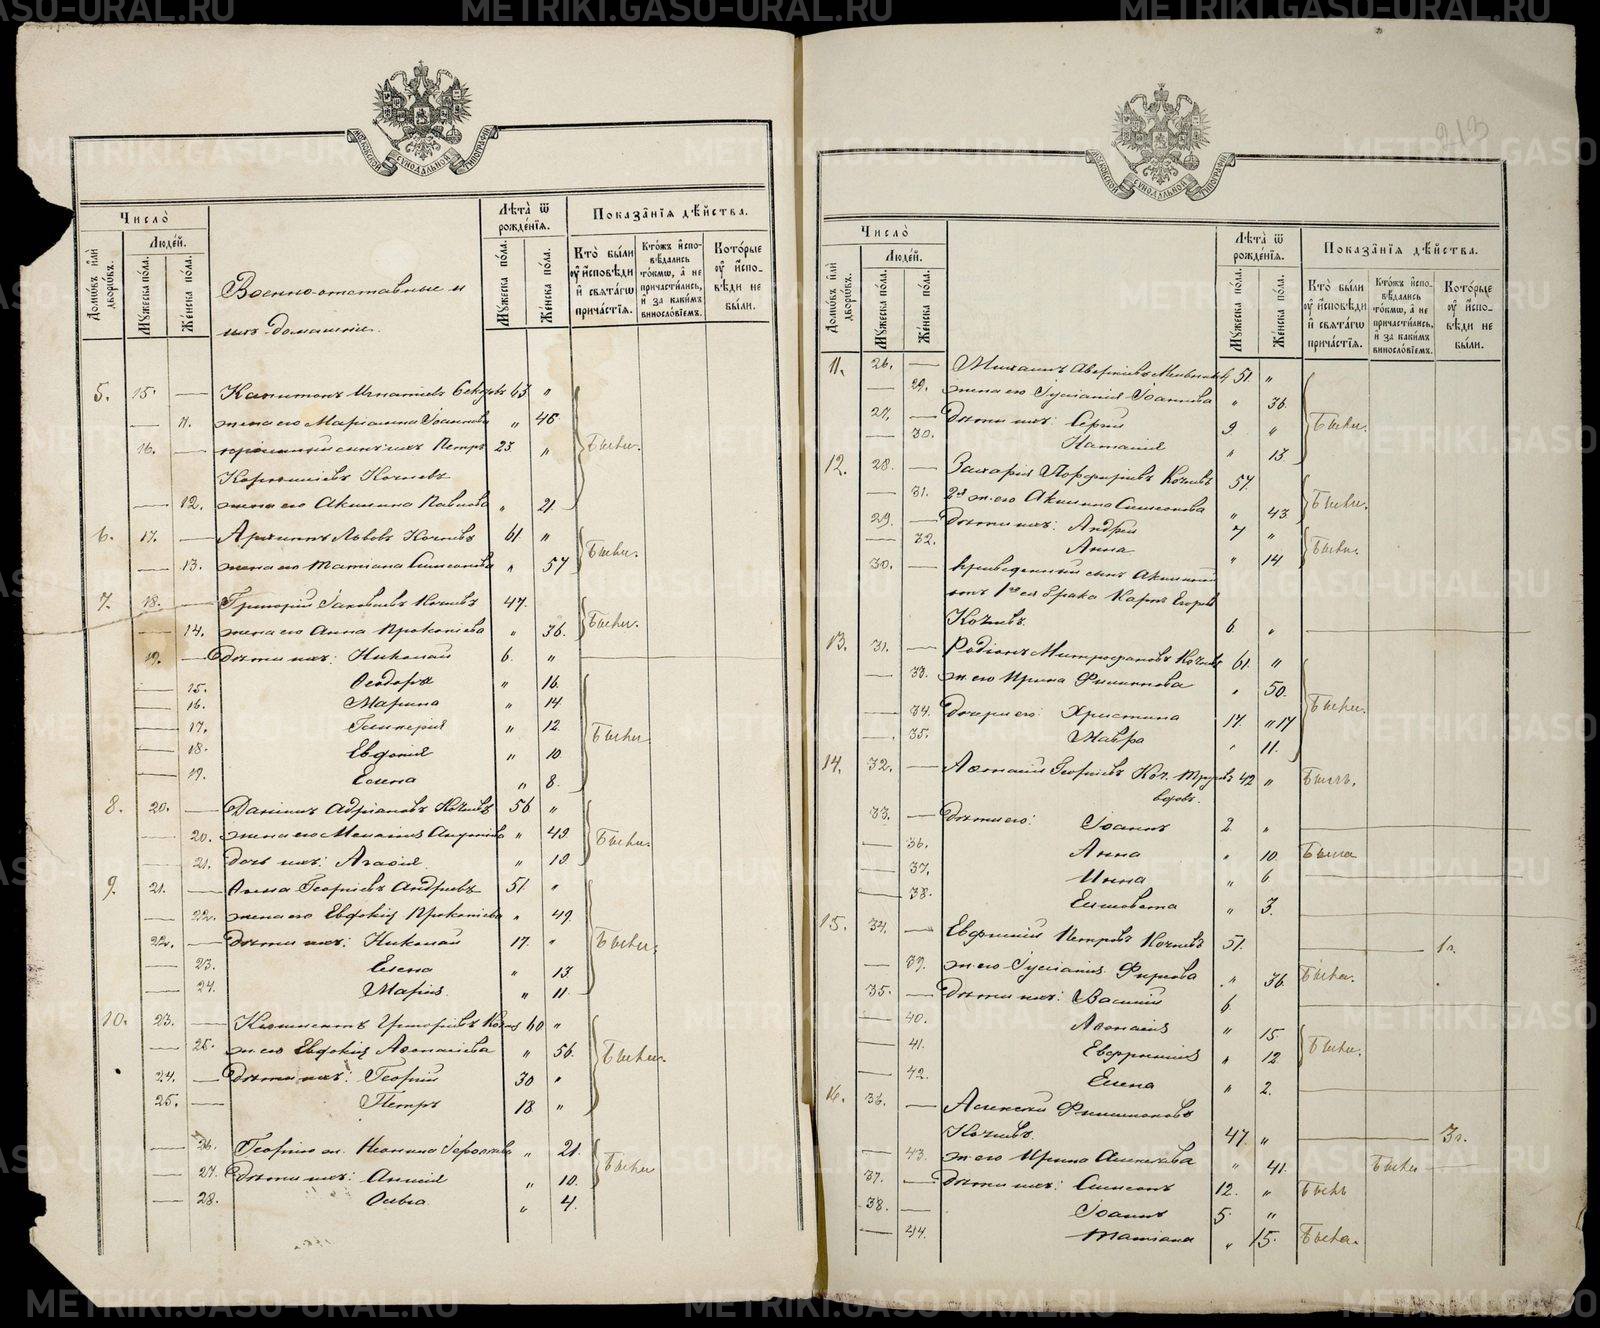 213
МОСКОВСКОЙ СѴНОДАЛЬНОЙ ТИПОГРАФІИ
Число̀
Людей.
Домѡвъ илѝ дворѡвъ.
Мꙋжеска пола.
Женска пола.
Военно-отставные и
ихъ домашніе.
Лѣта ѿ рожденїѧ.
Мꙋжеска пола.
Женска пола.
Показанїѧ дѣйства.
Кто были оу исповѣди и свѧтагѡ причастїѧ.
Ктожъ исповѣдались токмѡ, а не причастились, и за какимъ винословїемъ.
Которые оу исповѣди не были.
5. 15. — Капитонъ Игнатіевъ 63 "
— 11. жена его Маріанна Іоаннова " 46
16. — сынъ ихъ Петръ 23 " Были.
Корниліевъ Кочневъ
— 12. жена его Акилина Павлова " 21
6. 17. — Архиппъ Львовъ Кочневъ 61 "
— 13. жена его Татіана Симеонова " 57 Были.
7. 18. — Григорій Іаковлевъ Кочневъ 47. "
— 14. жена его Анна Прокопіева " 36. Были.
19. — Дѣти ихъ: Николай 6. "
— 15. Ѳеодора " 16.
— 16. Марина " 14.
— 17. Гликерія " 12. Были
— 18. Евдокія " 10.
— 19. Елена " 8.
8. 20. — Даніилъ Адріановъ Кочневъ 56 "
— 20. жена его Меланія " 49 Были.
— 21. дочь ихъ: Агафія " 19.
9. 21. — Ѳома Георгіевъ Андреевъ 51. "
— 22. жена его Евдокія Прокопіева " 49.
22. — Дѣти ихъ: Николай 17. " Были.
— 23. Елена " 13.
— 24. Марія " 11.
10. 23. — Климентъ Григоріевъ 60 "
— 25. ж. его Евдокія Аѳанасіева " 56. Были.
24. — Дѣти ихъ: Георгій 30 "
25. — Петръ 18 "
— 26. Георгія ж. " 21.
— 27. Дѣти ихъ: Анисія " 10. Были
— 28. " 4.
МОСКОВСКОЙ СѴНОДАЛЬНОЙ ТИПОГРАФІИ
Число̀
Людей.
Домѡвъ илѝ дворѡвъ.
Мꙋжеска пола.
Женска пола.
Лѣта ѿ рожденїѧ.
Мꙋжеска пола.
Женска пола.
Показанїѧ дѣйства.
Кто были оу исповѣди и свѧтагѡ причастїѧ.
Ктожъ исповѣдались токмѡ, а не причастились, и за какимъ винословїемъ.
Которые оу исповѣди не были.
11. 26. — Михаилъ Аверкіевъ 51. "
— 29. жена его Іуліанія Іоаннова " 36.
27. — Дѣти ихъ: Сергій 9 " Были.
— 30. Наталія " 13.
12. 28. — Захарія Порфиріевъ Кочневъ 57
— 31. 2я ж. его Акилина Симеонова " 43. Были.
29. — Дѣти ихъ: Андрей 7 "
— 32. Анна " 14 Были.
30. — приведенный сынъ Акилины
отъ 1го ея брака Карпъ Егоровъ
Кочневъ. 6. "
13. 31. — Родіонъ Митрофановъ Кочневъ 61. "
— 33. ж. его Ирина Филиппова " 50.
— 34. Дочери его: Христина 17. " 17 Были.
— 35. Мавра " 11.
14. 32. — Георгіевъ Коч. 42 " Былъ.
33. — Дѣти его: Іоаннъ 2. "
— 36. Анна " 10. Была
— 37. Инна " 6
— 38. Елисавета " 3.
15. 34. — Евфимій Петровъ Кочневъ 51. — 1 г.
— 39. ж. его Іуліанія " 36. Была.
35. — Дѣти ихъ: Василій 6
— 40. Аѳанасія " 15.
— 41. Евфросинія " 12 Были.
— 42. Елена " 2.
16. 36. — Алексій Филимоновъ
Кочневъ. 47. " — 3 г.
— 43. ж. его Ирина Алексѣева " 41. Была —
37. — Дѣти ихъ: Симеонъ 12. " Былъ
38. — Іоаннъ 5. "
— 44. Татіана " 15. Была.
METRIKI.GASO-URAL.RU